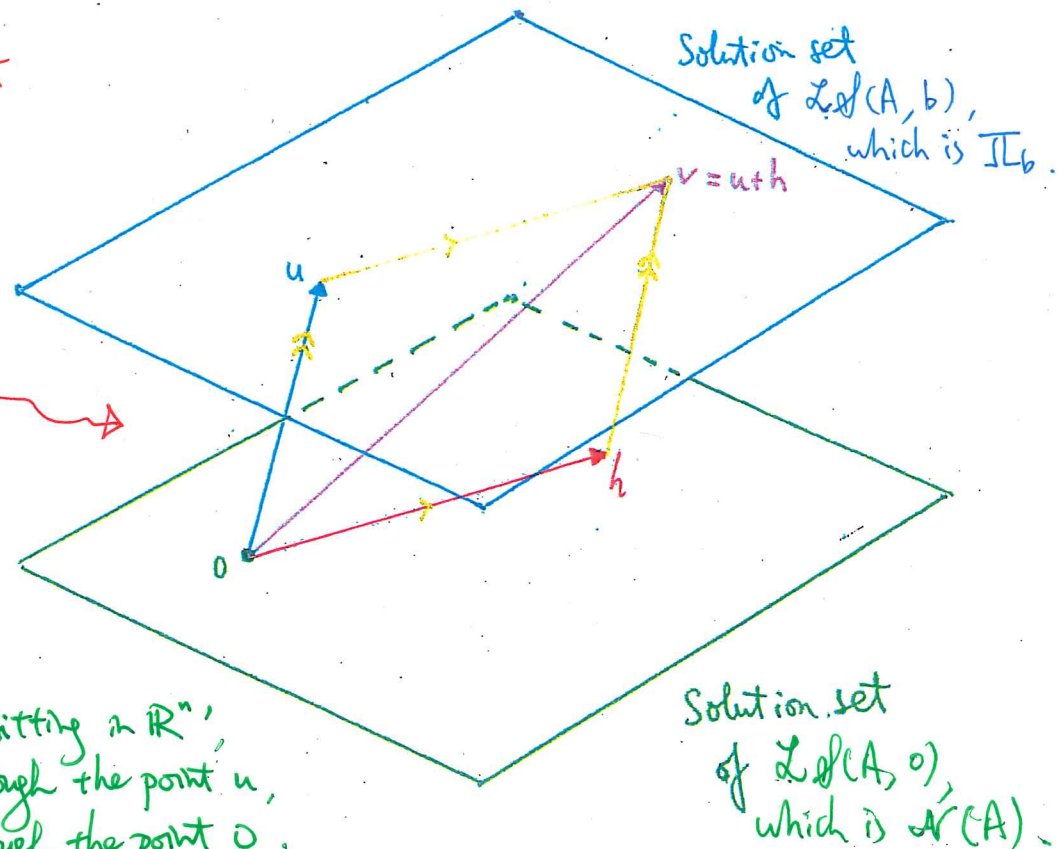 Solution set
of LS(A, b),
which is Π_b.
v = u+h
u
h
0
itting in ℝⁿ,
ough the point u,
the point 0.
Solution set
of LS(A, 0),
which is N(A).